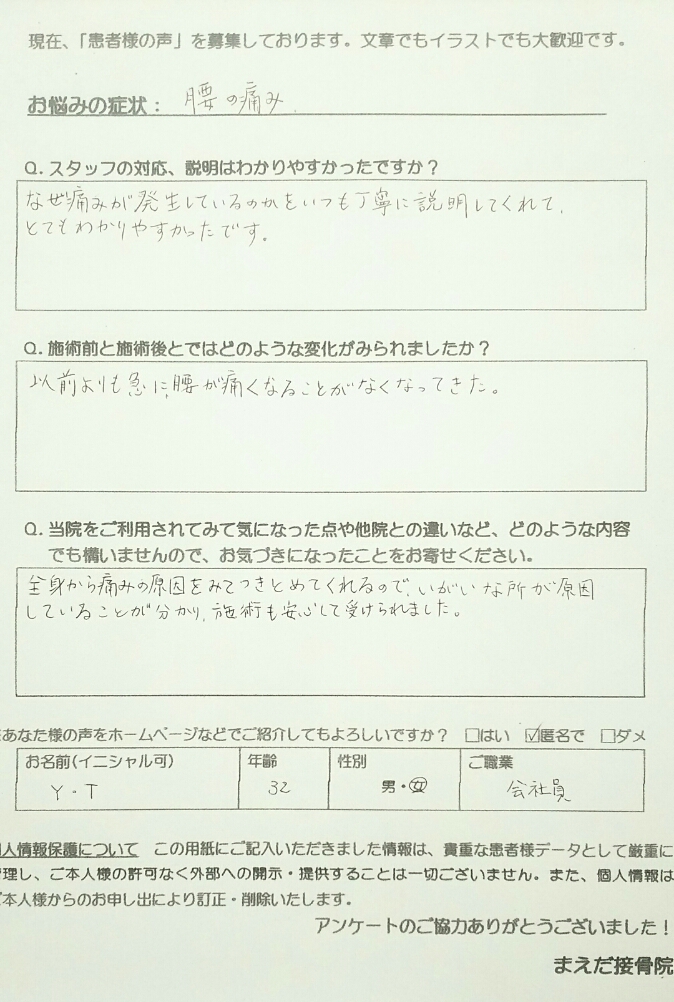 現在、「患者様の声」を募集しております。文章でもイラストでも大歓迎です。
お悩みの症状： 腰の痛み.
Q. スタッフの対応、説明はわかりやすかったですか？
なぜ痛みが発生しているのかをいつも丁寧に説明してくれて、
とてもわかりやすかったです。
Q. 施術前と施術後とではどのような変化がみられましたか？
以前よりも急に、腰が痛くなることがなくなってきた。
Q. 当院をご利用されてみて気になった点や他院との違いなど、どのような内容
でも構いませんので、お気づきになったことをお寄せください。
全身から痛みの原因をみてつきとめてくれるので、いがいな所が原因
していることが分かり、施術も安心して受けられました。
あなた様の声をホームページなどでご紹介してもよろしいですか？ □はい ☑匿名で □ダメ
お名前(イニシャル可) 年齢 性別 ご職業
Y・T 32 男・女 会社員
人情報保護について この用紙にご記入いただきました情報は、貴重な患者様データとして厳重に
理し、ご本人様の許可なく外部への開示・提供することは一切ございません。また、個人情報は
本人様からのお申し出により訂正・削除いたします。
アンケートのご協力ありがとうございました！
まえだ接骨院